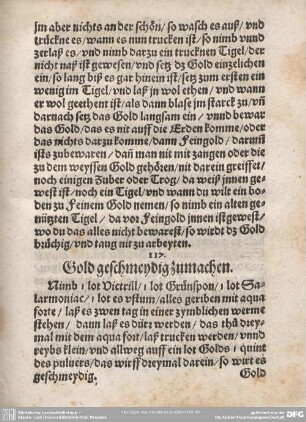 jm aber nichts an der schön/ so wasch es auß/ vnd
trückne es/ wann es nun trucken ist/ so nimb vnnd
zerlaß es/ vnd nimb darzu ein trucknen Tigel/ der
nicht naß ist gewesen/ vnd setz dz Gold einzelichen
ein/ so lang biß es gar hinein ist/ setz zum ersten ein
wenig im Tigel/ vnd laß jn wol ethen/ vnd wann
er wol geethent ist/ als dann blase jm starck zu/ vñ
darnach setz das Gold langsam ein/ vnnd bewar
das Gold/ das es nit auff die Erden komme/ oder
das nichts darzu komme/ dann Feingold/ darumb
ists zubewaren/ dañ man nit mit zangen oder die
zu dem weyssen Gold gehören/ nit darein greiffet/
noch einigen Zuber oder Trog/ da weiß jnnen ge-
west ist/ noch ein Tigel/ vnd wann du wilt ein bo-
den zu Feinem Gold nemen/ so nimb ein alten ge-
nützten Tigel/ da vor Feingold jnnen ist gewest/
wo du das alles nicht bewarest/ so wirdt dz Gold
brüchig/ vnd taug nit zu arbeyten.
117.
Gold geschmeydig zumachen.
Nimb 1 lot Victrill/ 1 lot Grünspon/ 1 lot Sa-
larmoniac/ 1 lot es vstum/ alles geriben mit aqua
forte/ laß es zwen tag in einer zymblichen werme
stehen/ dann laß es dürz werden/ das thů drey-
mal mit dem aqua fort/ laß trucken werden/ vnnd
reybs klein/ vnd allweg auff ein lot Golds 1 quint
des puluers/ das wirff dreymal darein/ so wirt es
geschmeydig.
Gold